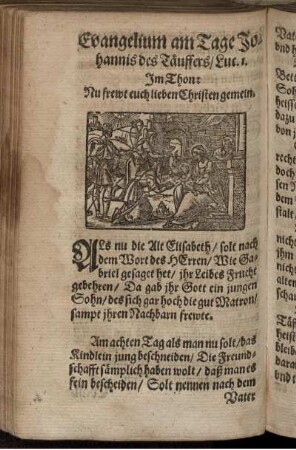 Evangelium am Tage Jo-
hannis des Täuffers / Luc. 1.
Im Thon:
Nu frewt euch lieben Christen gemein.
ALs nu die Alt Elisabeth / solt nach
dem Wort des HErren / Wie Ga-
briel gesaget het / jhr Leibes Frucht
gebehren / Da gab jhr Gott ein jungen
Sohn / des sich gar hoch die gut Matron /
sampt jhren Nachbarn frewte.
Am achten Tag als man nu solt / das
Kindlein jung beschneiden / Die Freund-
schafft sämplich haben wolt / daß man es
fein bescheiden / Solt nennen nach dem
Vater